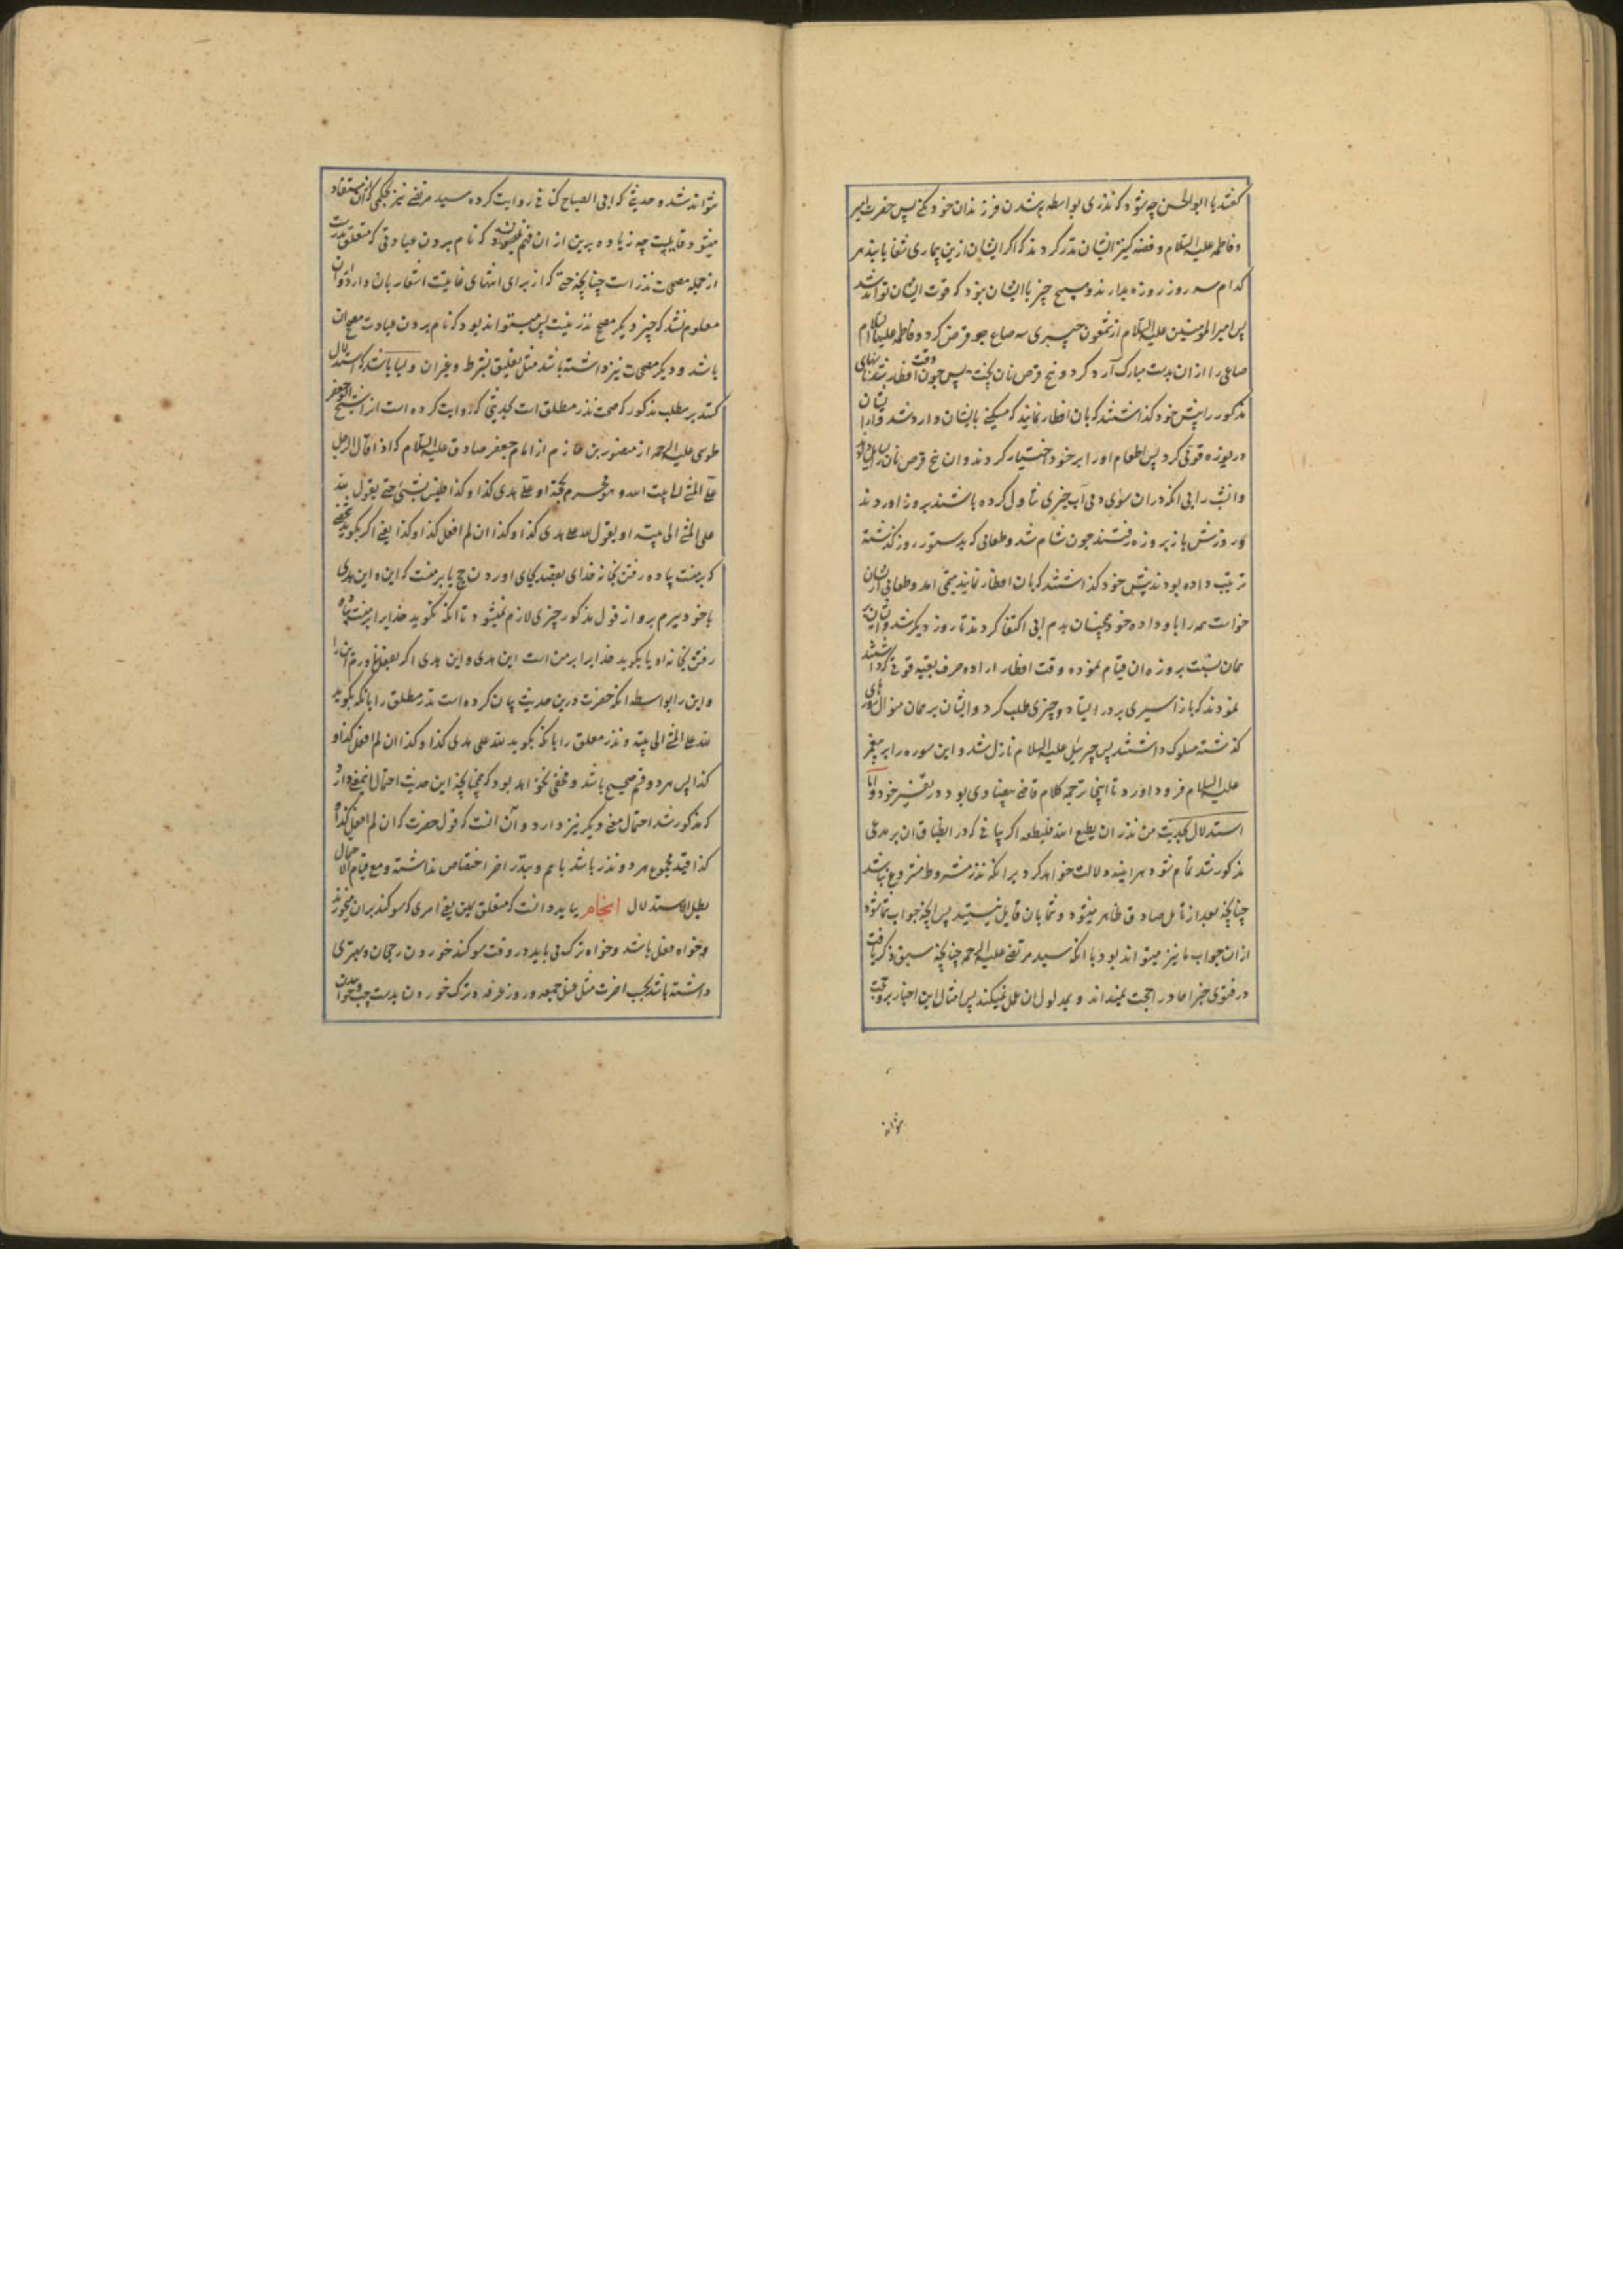 گفتند یا ابوالحسن چه شود که نذری بواسطه به شدن فرزندان خود کنی پس حضرت امیر
و فاطمه علیه السلام و فضه کنیز ایشان نذر کردند که اگر ایشان ازین بیماری شفا یابند هر
کدام سه روز روزه بدارند و هیچ چیز با ایشان نبود که قوت ایشان تواند شد
پس امیر المومنین علیه السلام از شمعون خیبری سه صاع جو قرض کرد و فاطمه علیها السلام
صاعی را از ان بدست مبارک آرد کرد و پنج قرص نان پخت پس چون وقت افطار شد نانهای
مذکور را پیش خود گذاشتند که بان افطار نمایند که مسکینی بایشان وارد شد و از ایشان
دریوزه قوتی کرد پس اطعام او را بر خود اختیار کردند و ان پنج قرص نان را
و انشب را بی انکه در ان سوای دمی آب چیزی تناول کرده باشند بروز اوردند
و روزش باز بروزه رفتند چون شام شد و طعامی که بدستور روز گذشته
ترتیب داده بودند پیش خود گذاشتند که بان افطار نمایند یتیمی امد و طعامی از ایشان
خواست همه را باو داده خود همچنان بدم ابی اکتفا کردند تا روز دیگر شد و ایشان
همان نسبت بروزه ان قیام نموده وقت افطار اراده صرف بقیه قوتی که داشتند
نمودند که باز اسیری بر در ایستاد و چیزی طلب کرد و ایشان بر همان منوال روزهای
گذشته سلوک داشتند پس جبرئیل علیه السلام نازل شد و این سوره را بر پیغمبر
علیه السلام فرود اورد تا اینجا ترجمه کلام قاضی بیضاوی بود در تفسیر خود و اما
استدلال بحدیث من نذر ان یطیع الله فلیطعه اگر چنانچه که در انطباق ان بر مدعی
مذکور شد تمام شود هر اینه دلالت خواهد کرد بر انکه نذر مشروط مشروع نباشد
چنانچه بعد از تامل صادق ظاهر میشود و شما بان قایل نیستید پس انچه جواب شما شود
از ان جواب ما نیز میتواند بود با انکه سید مرتضی علیه الرحمه چنانچه سبق ذکر یافت
در فتوی خبر احاد را حجت نمیداند و بمدلول ان عمل نمیکند پس امثال این اخبار بر و حجت
نتواند
نتواند شد و حدیثی که ابی الصباح کنانی روایت کرده سید مرتضی نیز بحکمی که از ان مستفاد
میشود قایلست چه زیاده برین از ان فهم نمیشود که نام بردن عبادتی که متعلق نذرست
از جمله مصححات نذر است چنانچه حتی که از برای انتهای غایتست اشعار بان دارد و از ان
معلوم نشد که چیز دیگر مصحح نذر نیست پس میتواند بود که نام بردن عبادت مصحح ان
باشد و دیگر مصححات نیز داشته باشد مثل تعلیق بشرط و غیر ان و بسا باشد که استدلال
کنند بر مطلب مذکور که صحت نذر مطلق است بحدیثی که روایت کرده است انرا شیخ ابو جعفر
طوسی علیه الرحمه از منصور بن حازم از امام جعفر صادق علیه السلام که اذا قال الرجل
علی المشی الی بیت الله و هو محرم بحجة او علی هدی کذا و کذا فلیس بشیء حتی یقول لله
علی المشی الی بیته او یقول لله علی هدی کذا و کذا ان لم افعل کذا و کذا یعنی اگر بگوید شخصی
که بر منست پیاده رفتن بخانه خدای بقصد بجای اوردن حج یا بر منست که این و این هدی
با خود ببرم برو از قول مذکور چیزی لازم نمیشود تا انکه نگوید خدایرا بر منست پیاده
رفتن بخانه او یا بگوید خدایرا بر من است این هدی و این هدی اگر بفعل نیاورم این را
و این را بواسطه انکه حضرت درین حدیث بیان کرده است نذر مطلق را بانکه بگوید
لله علی المشی الی بیته و نذر معلق را بانکه بگوید لله علی هدی کذا و کذا ان لم افعل کذا و
کذا پس هر دو قسم صحیح باشد و مخفی نخواهد بود که همچنانچه این حدیث احتمال اینمعنی دارد
که مذکور شد احتمال معنی دیگر نیز دارد و آن آنست که قول حضرت که ان لم افعل کذا و
کذا قید مجموع هر دو نذر باشد با هم و بنذر اخر اختصاص نداشته و مع قیام الاحتمال
بطل الاستدلال انجام بباید دانست که متعلق یمین یعنی امری که سوگند بر ان میخورند
و خواه فعل باشد و خواه ترک می باید در وقت سوگند خوردن رجحان و بهتری
داشته باشد بحسب اخرت مثل غسل جمعه و روز عرفه و ترک خوردن بدست چپ